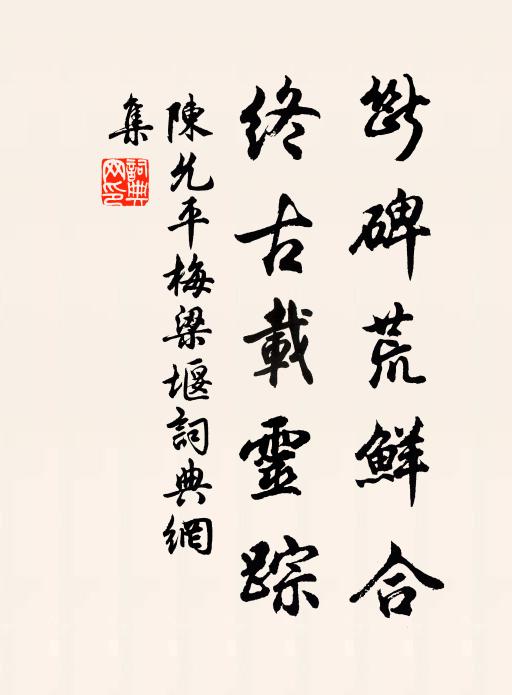 斷碑荒鮮合
終古載靈踪
陳允平梅梁堰詞典網
集
詞典網印